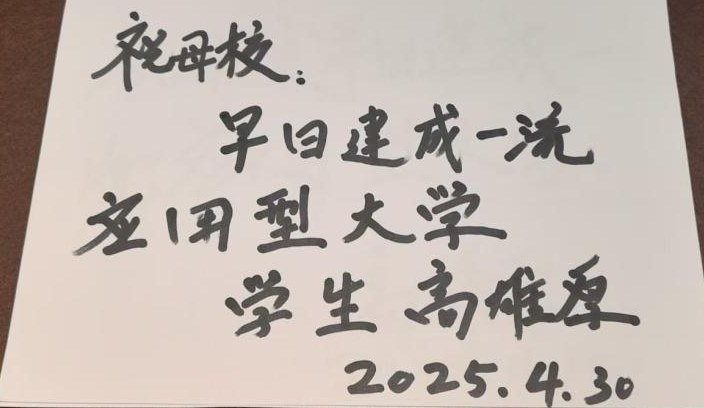 祝母校:
早日建成一流
应用型大学
学生 高雄原
2025.4.30